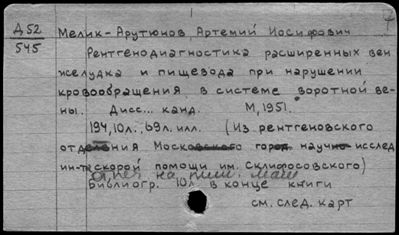 Д52
545
Мелик-Арутюнов, Артемий Иосифович
Рентгенодиагностика расширенных вен
желудка и пищевода при нарушении
кровообращения в системе воротной ве-
ны. Дисс... канд. М, 1951.
194, 10л., 69л. илл. (Из рентгеновского
отделения Московского город. научно-исслед.
ин-та скорой помощи им. Склифосовского)
на пиш. маш
Библиогр. 10л. в конце книги
см. след. карт